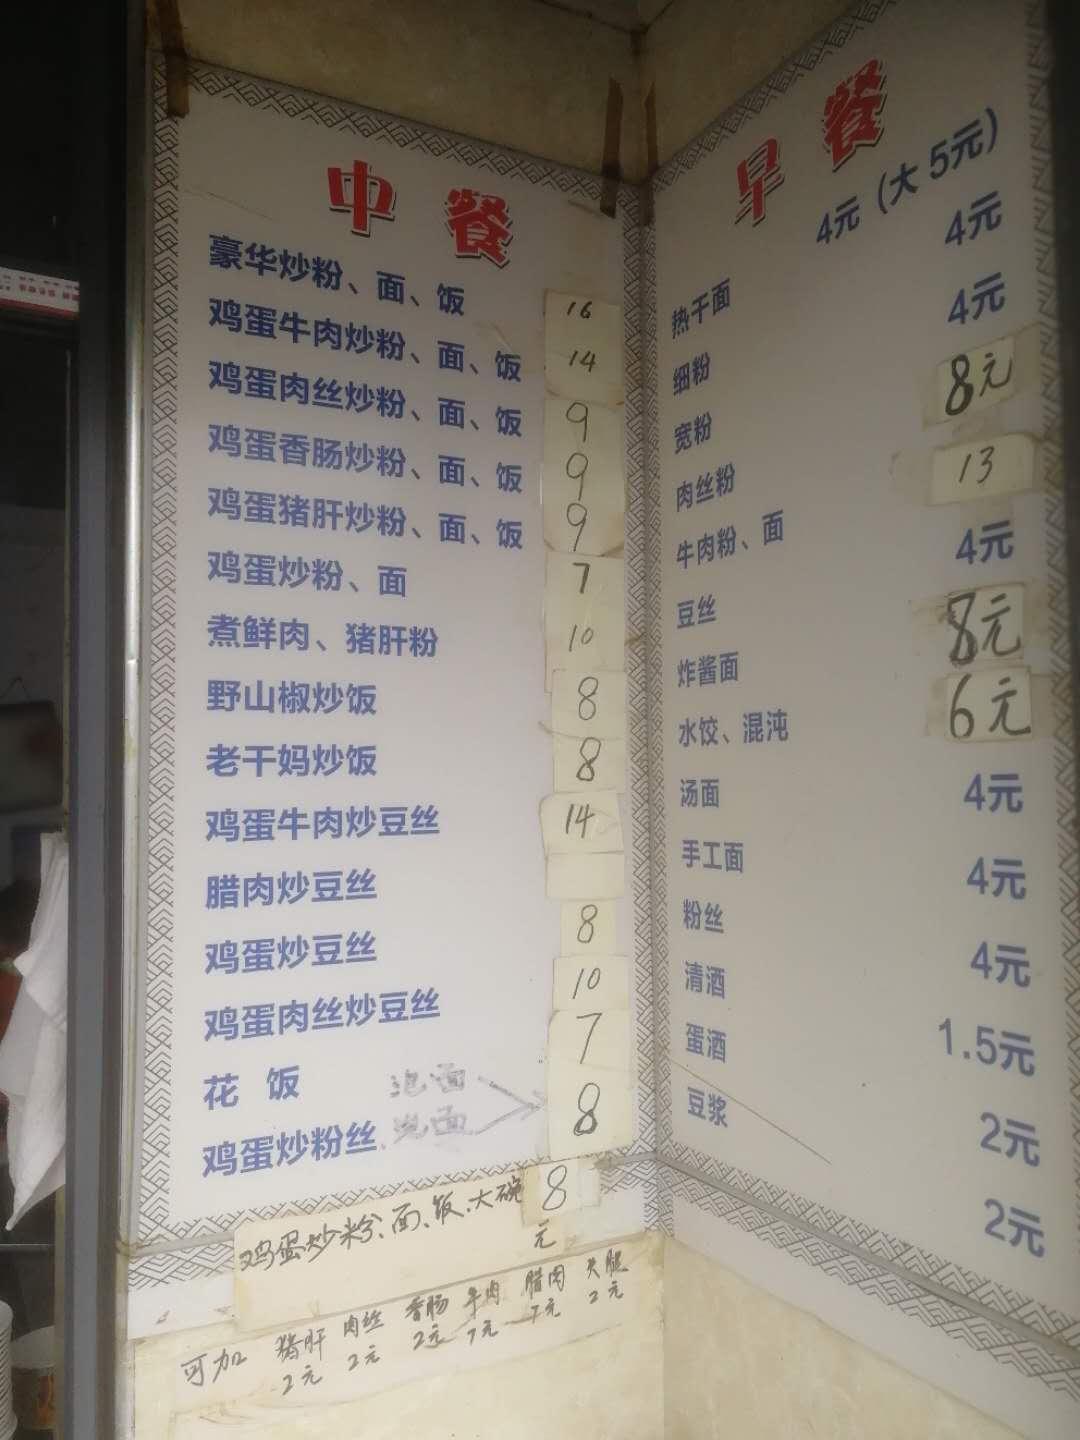 中餐
豪华炒粉、面、饭 16
鸡蛋牛肉炒粉、面、饭 14
鸡蛋肉丝炒粉、面、饭 9
鸡蛋香肠炒粉、面、饭 9
鸡蛋猪肝炒粉、面、饭 9
鸡蛋炒粉、面 7
煮鲜肉、猪肝粉 10
野山椒炒饭 8
老干妈炒饭 8
鸡蛋牛肉炒豆丝 14
腊肉炒豆丝
鸡蛋炒豆丝 8
鸡蛋肉丝炒豆丝 10
花饭 泡面 7
鸡蛋炒粉丝 泡面 8
鸡蛋炒粉、面、饭、大碗 8元
可加 猪肝2元 肉丝2元 香肠2元 牛肉7元 腊肉7元 火腿2元
早餐
热干面 4元(大5元)
细粉 4元
宽粉 4元
肉丝粉 8元
牛肉粉、面 13
豆丝 4元
炸酱面 8元
水饺、混沌 6元
汤面 4元
手工面 4元
粉丝 4元
清酒 1.5元
蛋酒 2元
豆浆 2元